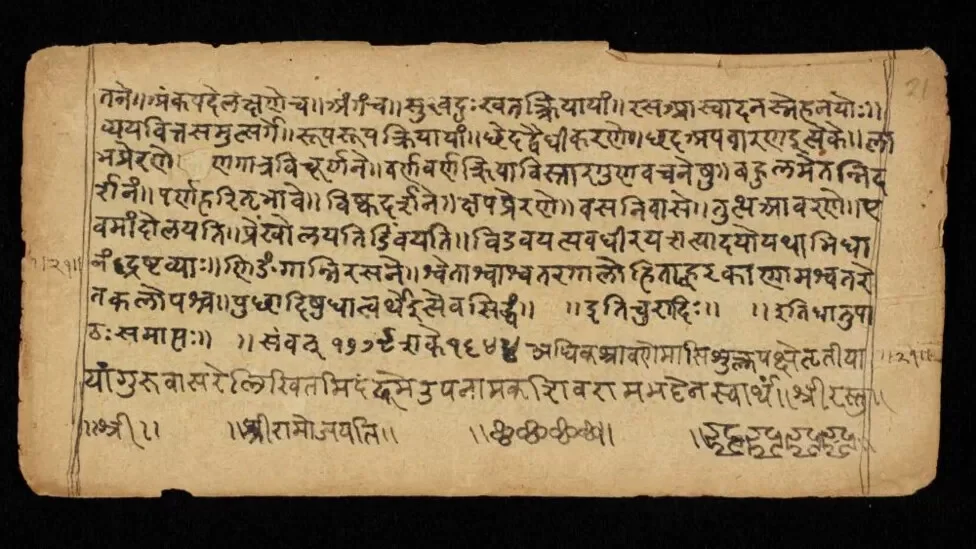 तने॥अंकपदेलक्षणेच॥अंगंच॥सुखदुःखतत्क्रियायां॥रसआस्वादनस्नेहनयोः॥
व्ययवित्तसमुत्सर्गे॥रूपरूपक्रियायां॥छेदद्वैधीकरणे॥छदअपवारणइत्येके॥ला
भप्रेरणे॥ व्रणगात्रविचूर्णने॥वर्णवर्णक्रियाविस्तारगुणवचनेषु॥बहुलमेतन्निद
र्शनं॥पर्णहरितभावे॥विष्कदर्शने॥क्षपप्रेरणे॥वसनिवासे॥तुत्थआवरणे॥ए
वमांदोलयति॥प्रेंखोलयति विडंबयति॥ अवधीरयत्यादयो यथाभिधा
नं द्रष्टव्याः॥णिङंगान्निरसने॥श्वेताश्वाश्वतरगालोडिताह्वरकाणामश्वतरे
तकलोपश्च॥पुच्छादिषुधात्वर्थेइत्येवसिद्धं॥ ॥इतिचुरादिः॥ ॥इतिधातुपा
ठःसमाप्तः॥ ॥संवत् शके अधिकश्रावणेमासिशुक्लपक्षेतृतीया
यांगुरुवासरेलिखितमिदं उपनामक रामभट्टेनस्वार्थं॥श्रीरस्तु॥
॥श्री॥ ॥श्रीरामोजयति॥
21
॥२१॥
॥२१॥